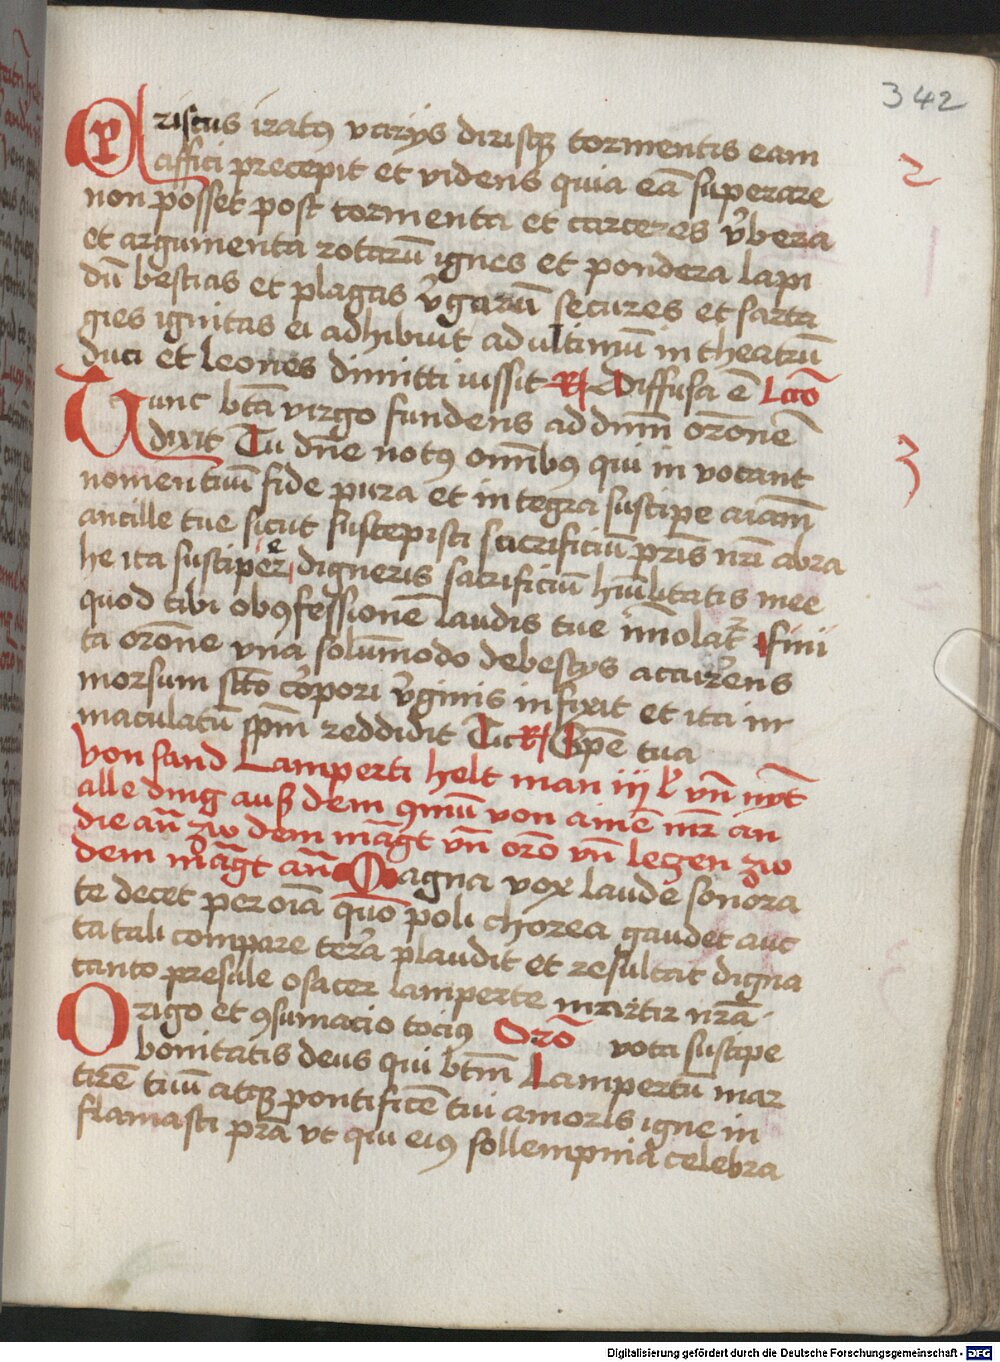 342
Priscus iratꝰ varijs dirisqꝫ tormentis eam
affici precepit et videns quia eā superare
2
non posset post tormenta et carceres v̓bera
et argumenta rotarū ignes et pondera lapi
dū bestias et plagas v̓garū secures et sarta
gies ignitas ei adhibiuit ad ultimū in theatrū
duci et leones dimitti iussit R Diffusa ē Lc̄o
Tunc btā virgo fundens ad dnm̄ orōne
dixit Tu dn̄e notꝰ om̄ibꝰ qui in vocant
3
nomen tuū fide pura et integra suscipe aīam
ancille tue sicut suscepisti sacrificiū pr̄is nr̄i abra
he ita suscipere digneris sacrificiū hūilitatis mee
quod tibi ob ꝯfessionē laudis tue īmolat᷑ fini
ta orōne vna solūmodo de bestijs accurrens
morsum sc̄o corpori v̓ginis infixit et ita im
maculatū sp̄m reddidit Tu R Spē tua
Von sand Lamperti helt man iij l vn̄ nyt
alle ding auß dem ꝯmū von aimē mr̄ an
die an̄ zw dem mag̃t vn̄ orō vn̄ leczen zw
dem mag̃t an̄ Magna vox laude sonora
te decet per oīa quo poli chorea gaudet auc
ta tali compare terra plaudit et resultat digna
tanto presule o sacer lamperte martir nr̄a
Origo et ꝯsumacio tociꝰ Orō vota suscipe
bonitatis deus qui btm̄ Lampertū mar
tirē tuū atqꝫ pontificē tui amoris igne in
flamasti pr̄a vt qui eiꝰ sollempnia celebra
Digitalisierung gefördert durch die Deutsche Forschungsgemeinschaft - DFG